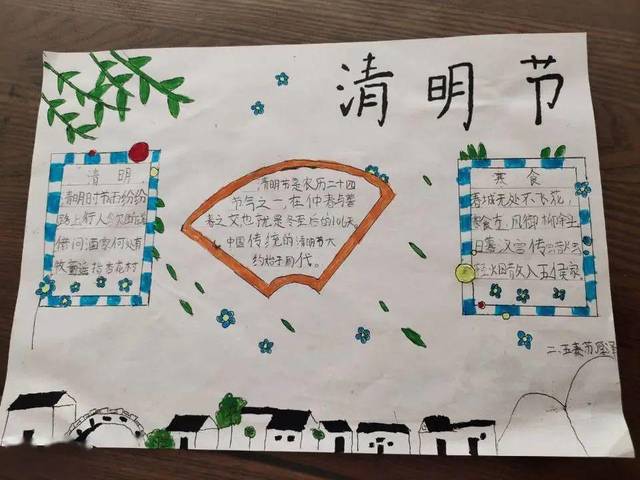 清明节
清明
清明时节雨纷纷
路上行人欲断魂
借问酒家何处有
牧童遥指杏花村
清明节是农历二十四
节气之一,在仲春与暮
春之交也就是冬至后的106天。
中国传统的清明节大
约始于周代。
寒食
春城无处不飞花,
寒食东风御柳斜
日暮汉宫传
轻烟散入五侯家
二.五